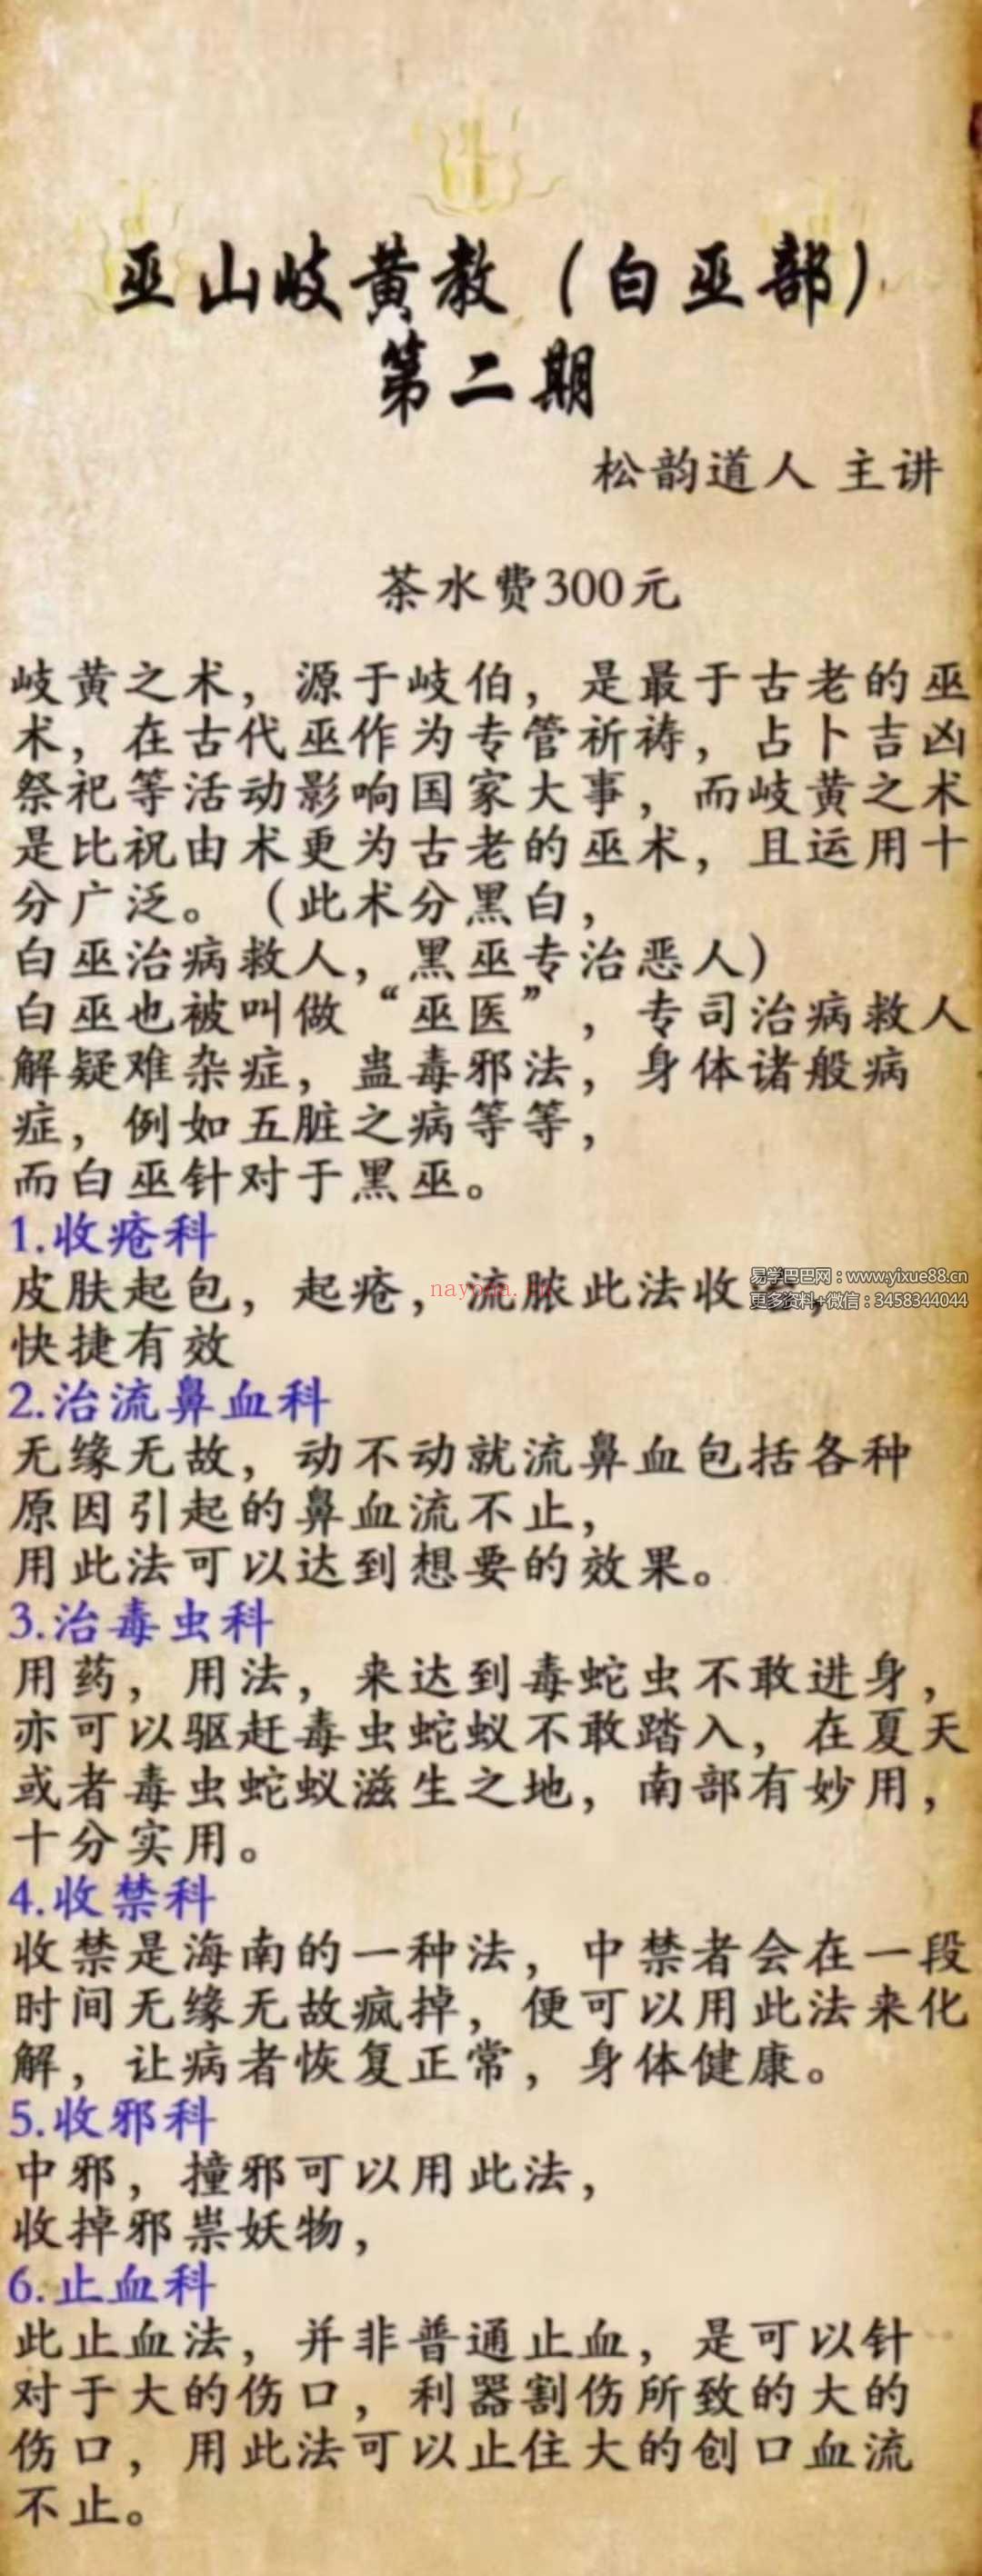 巫山岐黄教（白巫部）
第二期
松韵道人 主讲
茶水费300元
岐黄之术，源于岐伯，是最于古老的巫
术，在古代巫作为专管祈祷，占卜吉凶
祭祀等活动影响国家大事，而岐黄之术
是比祝由术更为古老的巫术，且运用十
分广泛。（此术分黑白，
白巫治病救人，黑巫专治恶人）
白巫也被叫做“巫医”，专司治病救人
解疑难杂症，蛊毒邪法，身体诸般病
症，例如五脏之病等等，
而白巫针对于黑巫。
1.收疮科
皮肤起包，起疮，流脓此法收
易学巴巴网：www.yixue88.cn
更多资料+微信：3458344044
快捷有效
2.治流鼻血科
无缘无故，动不动就流鼻血包括各种
原因引起的鼻血流不止，
用此法可以达到想要的效果。
3.治毒虫科
用药，用法，来达到毒蛇虫不敢进身，
亦可以驱赶毒虫蛇蚁不敢踏入，在夏天
或者毒虫蛇蚁滋生之地，南部有妙用，
十分实用。
4.收禁科
收禁是海南的一种法，中禁者会在一段
时间无缘无故疯掉，便可以用此法来化
解，让病者恢复正常，身体健康。
5.收邪科
中邪，撞邪可以用此法，
收掉邪祟妖物，
6.止血科
此止血法，并非普通止血，是可以针
对于大的伤口，利器割伤所致的大的
伤口，用此法可以止住大的创口血流
不止。